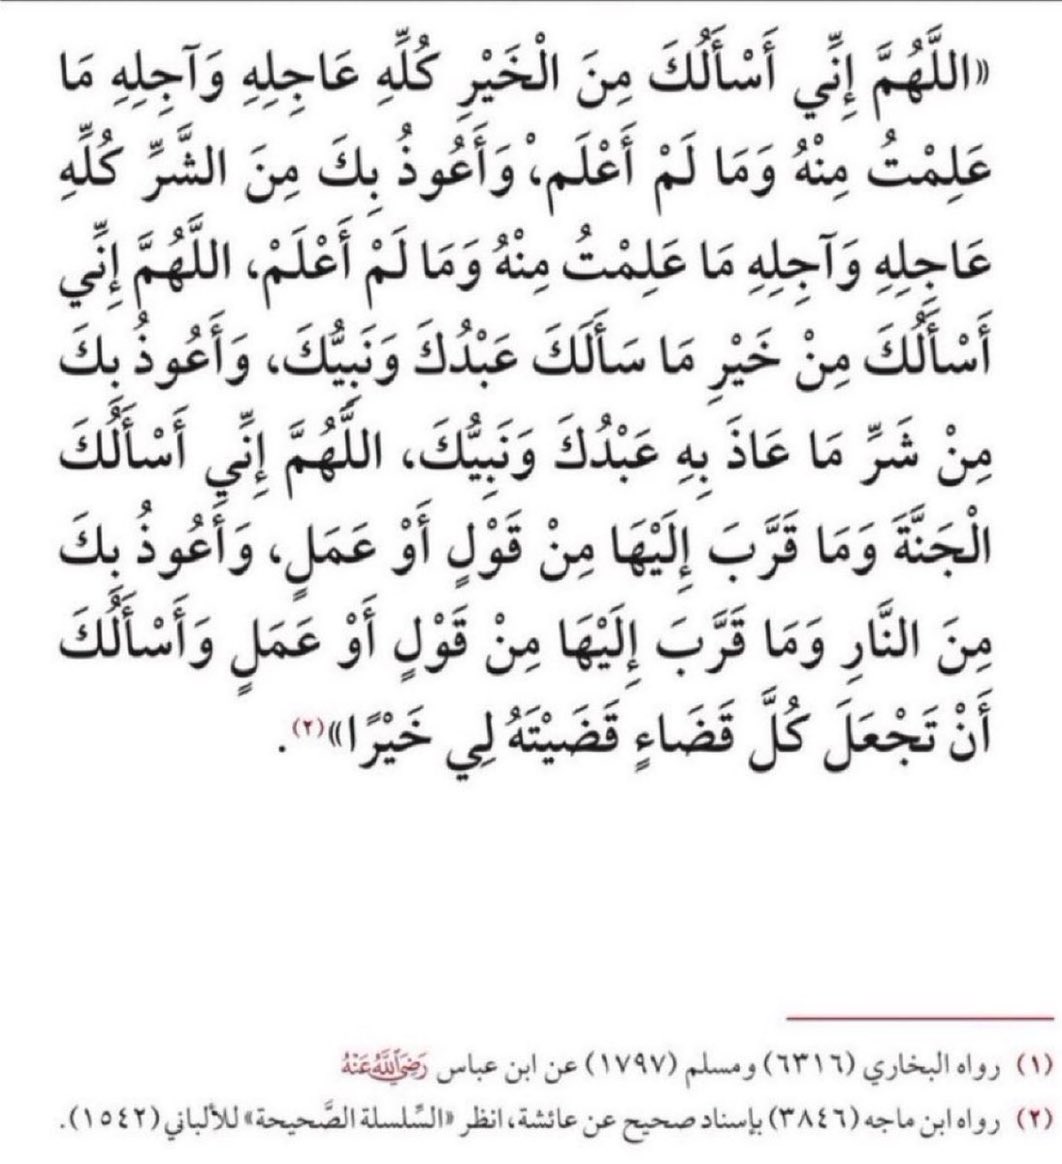 «اللَّهُمَّ إِنِّي أَسْأَلُكَ مِنَ الْخَيْرِ كُلِّهِ عَاجِلِهِ وَآجِلِهِ مَا
عَلِمْتُ مِنْهُ وَمَا لَمْ أَعْلَم،ْ وَأَعُوذُ بِكَ مِنَ الشَّرِّ كُلِّهِ
عَاجِلِهِ وَآجِلِهِ مَا عَلِمْتُ مِنْهُ وَمَا لَمْ أَعْلَمْ، اللَّهُمَّ إِنِّي
أَسْأَلُكَ مِنْ خَيْرِ مَا سَأَلَكَ عَبْدُكَ وَنَبِيُّكَ، وَأَعُوذُ بِكَ
مِنْ شَرِّ مَا عَاذَ بِهِ عَبْدُكَ وَنَبِيُّكَ، اللَّهُمَّ إِنِّي أَسْأَلُكَ
الْجَنَّةَ وَمَا قَرَّبَ إِلَيْهَا مِنْ قَوْلٍ أَوْ عَمَلٍ، وَأَعُوذُ بِكَ
مِنَ النَّارِ وَمَا قَرَّبَ إِلَيْهَا مِنْ قَوْلٍ أَوْ عَمَلٍ وَأَسْأَلُكَ
أَنْ تَجْعَلَ كُلَّ قَضَاءٍ قَضَيْتَهُ لِي خَيْرًا»(٢).
(١) رواه البخاري (٦٣١٦) ومسلم (١٧٩٧) عن ابن عباس رَضِيَ اللَّهُ عَنْهُ
(٢) رواه ابن ماجه (٣٨٤٦) بإسناد صحيح عن عائشة، انظر «السِّلسلة الصَّحيحة» للألباني (١٥٤٢).